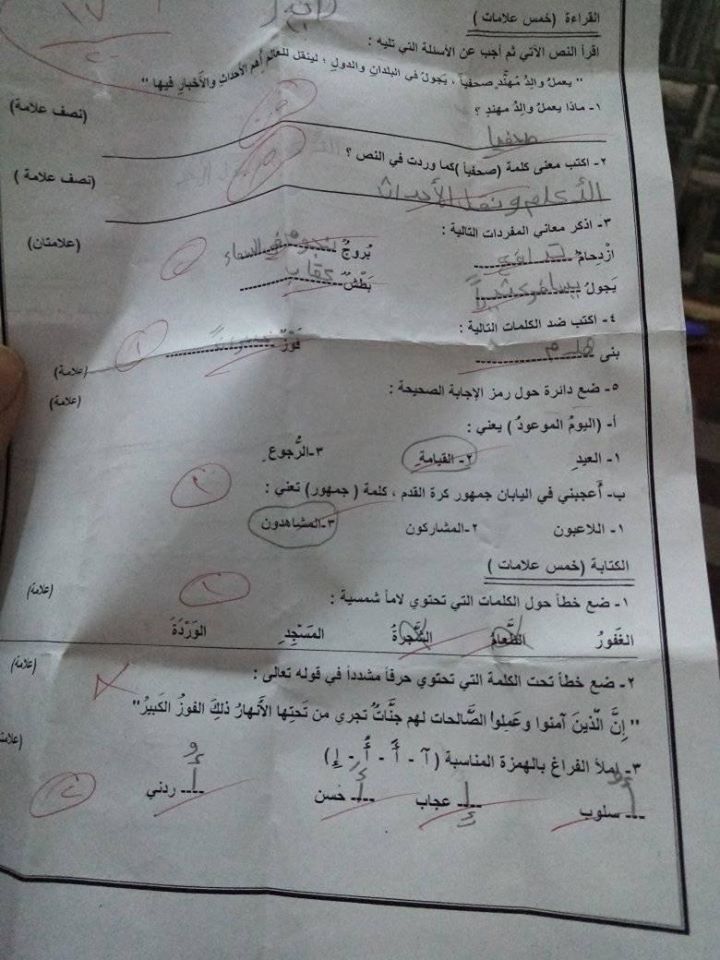 القراءة (خمس علامات)
اقرأ النص الآتي ثم أجب عن الأسئلة التي تليه :
" يعملُ والِدُ مُهنَّدٍ صحفياً ، يَجولُ في البلدانِ والدولِ ؛ لينقل للعالم أهم الأحداثِ والأخبارِ فيها "
١- ماذا يعملُ والِدُ مهندٍ ؟ (نصف علامة)
صحفيا
٢- اكتب معنى كلمة (صحفياً) كما وردت في النص ؟ (نصف علامة)
٣- اذكر معاني المفردات التالية : (علامتان)
ازْدِحامٌ تدافع بُروجٌ نجوم في السماء
يَجولُ يسافر كثيراً بَطْشٌ عقاب
٤- اكتب ضد الكلمات التالية :
بنى هدم فَوْزٌ
(علامة)
٥- ضع دائرة حول رمز الإجابة الصحيحة : (علامة)
أ- (اليومُ الموعودُ) يعني :
١- العيدِ ٢- القيامةِ ٣-الرُّجوعِ
ب- أعجبني في اليابان جمهور كرة القدم ، كلمة (جمهور) تعني :
١- اللاعبون ٢-المشاركون ٣-المشاهدون
الكتابة (خمس علامات)
١- ضع خطاً حول الكلمات التي تحتوي لاماً شمسية : (علامة)
الغَفورُ الطَّعامُ الشَّجرةُ المَسْجِدِ الوَرْدَةَ
٢- ضع خطاً تحت الكلمة التي تحتوي حرفاً مشدداً في قوله تعالى : (علامة)
" إنَّ الَّذينَ آمنوا وعَمِلوا الصَّالحات لهم جنَّاتٌ تجري من تَحتِها الأَنهارُ ذلكَ الفوزُ الكَبيرُ"
٣- إملأ الفراغ بالهمزة المناسبة (آ - أَ - أُ - إِ)
أُ سلوب إِ عجاب خسن ردني